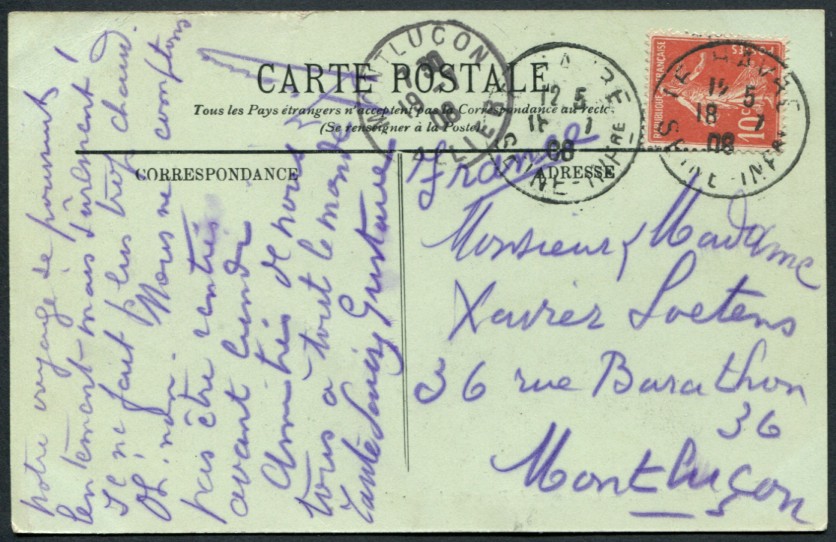 CARTE POSTALE
Tous les Pays étrangers n'acceptent pas la Correspondance au recto
(Se renseigner à la Poste)
CORRESPONDANCE
ADRESSE
MONTLUÇON
ALLIER
LE HAVRE
12 5
18 7
08
SEINE-INFRE
LE HAVRE
12 5
18 7
08
SEINE-INFRE
POSTES
REPUBLIQUE FRANÇAISE
10
France
Monsieur Madame
Xavier Loetens
36 rue Barathon
36
Montluçon
notre voyage se poursuit
lentement mais sûrement!
Il ne fait plus trop chaud.
Oh! non. Nous ne comptons
pas être rentrés
avant lundi
Amitiés de nous
tous à tout le monde
Gustave